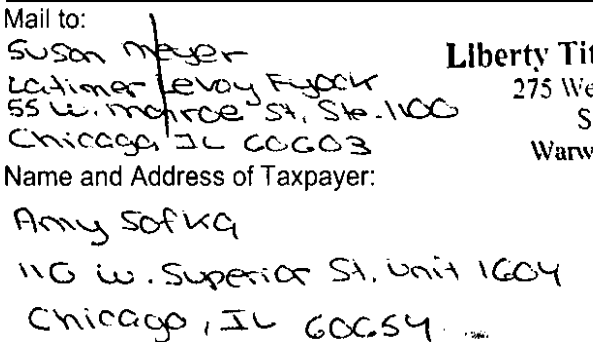 Mail to:
Susan Meyer
Latimer Levay Fyock
55 W. Monroe St, Ste. 1100
Chicago IL 60603
Liberty Tit
275 We
S
Warw
Name and Address of Taxpayer:
Amy Sofka
110 W. Superior St. Unit 1604
Chicago, IL 60654